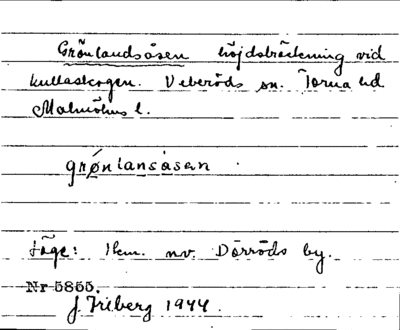 Grönlandsåsen höjdsträckning vid
kullaskogen. Veberöds sn. Torna hd
Malmöhus l.
grǿnlansåsan
Läge: 1 km. nv. Dörröds by.
Nr 5855.
J. Friberg 1944.